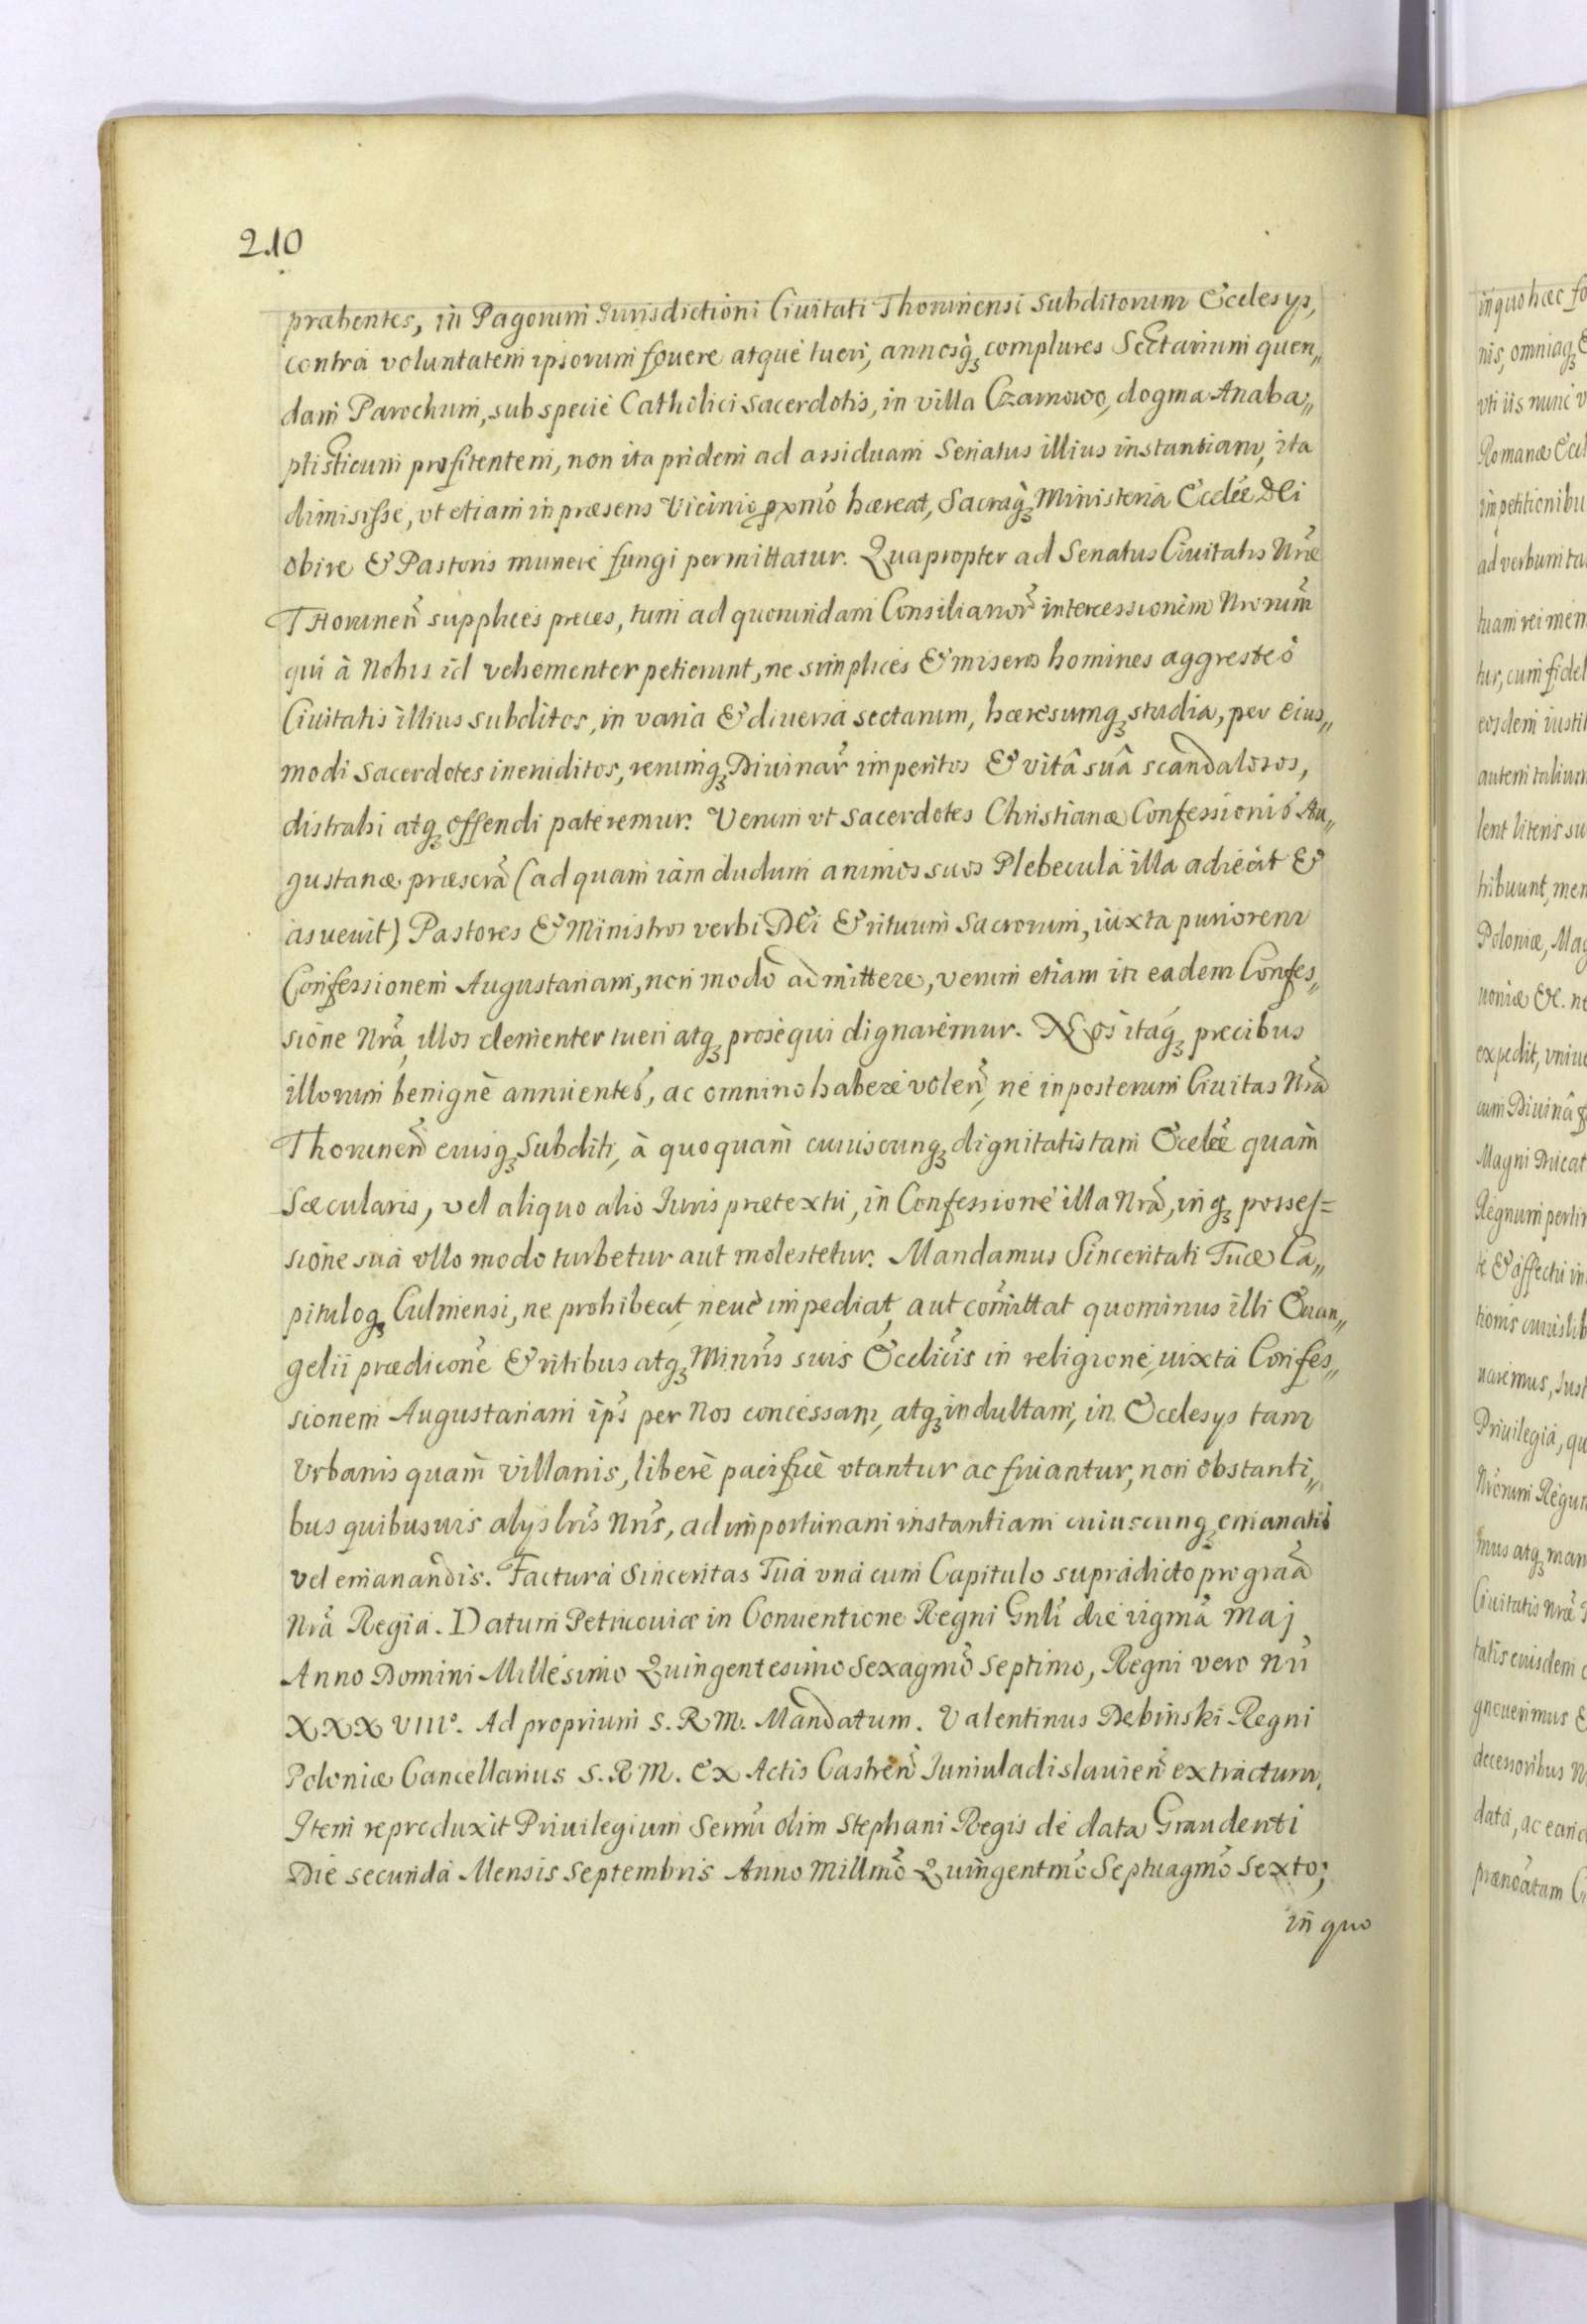 210
præbentes, in Pagorum Iurisdictioni Ciuitati Thorunensi subditorum Ecclesys,
contra voluntatem ipsorum fouere atque tueri, annosq₃ complures Sectarium quen„
dam Parochum, sub specie Catholici Sacerdotis, in villa Czarnowo, dogma Anaba„
ptisticum profitentem, non ita pridem ad assiduam Senatus illius instantiam, ita
dimisisse, vt etiam in præsens Vicinio pxmo hæreat, Sacraq₃ Ministeria Eccliæ Dei
obire & Pastoris munere fungi permittatur. Quapropter ad Senatus Ciuitatis Nræ
Thorunen supplices preces, tum ad quorundam Consiliarior intercessionem Nrorum
qui à Nobis id vehementer petierunt, ne simplices & miseros homines aggrestes
Ciuitatis illius subditos, in varia & diuersa sectarum, hæresumq₃ studia, per eius„
modi Sacerdotes ineruditos, rerumq₃ Diuinar imperitos & vitâ suâ scandalosos,
distrahi atq₃ offendi pateremur. Verum vt Sacerdotes Christianæ Confessionis Au„
gustanæ præserã (ad quam iam dudum animos suos Plebecula illa adiecit &
asueuit) Pastores & Ministros verbi DEi & rituum Sacrorum, iuxta puriorem
Confessionem Augustanam, non modo admittere, verum etiam in eadem Confes„
sione Nrã, illos clementer tueri atq₃ prosequi dignaremur. Nos itaq₃ precibus
illorum benignè annuentes, ac omnino habere volen, ne inposterum Ciuitas Nrã
Thorunen eiusq₃ Subditi, à quoquam cuiuscunq₃ dignitatis tam Eccliæ quàm
Sæcularis, vel aliquo alio Iuris prætextu, in Confessione illa Nrã, inq₃ posses=
sione sua vllo modo turbetur aut molestetur. Mandamus Sinceritati Tuæ Ca„
pituloq₃ Culmensi, ne prohibeat, neue impediat, aut comittat quominus illi Euan„
gelii prædicone & ritibus atq₃ Minris suis Ecclicis in religione, iuxta Confes„
sionem Augustanam ips per Nos concessam, atq₃ indultam, in Ecclesys tam
Vrbanis quàm villanis, liberè pacificè vtantur ac fruantur, non obstanti„
bus quibusuis alys lris Nris, ad importunam instantiam cuiuscunq₃ emanatis
vel emanandis. Factura Sinceritas Tua vna cum Capitulo supradicto pro graã
Nrã Regia. Datum Petricouiæ in Conuentione Regni Gnli die vigmã Maj
Anno Domini Millesimo Quingentesimo Sexagmo Septimo, Regni vero nri
XXXVIIIº. Ad proprium S. R M. Mandatum. Valentinus Debinski Regni
Poloniæ Cancellarius S. R M. Ex Actis Castren Iuniuladislauien extractum.
Item reproduxit Priuilegium Sermi olim Stephani Regis de data Graudenti
Die secunda Mensis Septembris Anno Millmo Quingentmo Septuagmo Sexto;
in quo